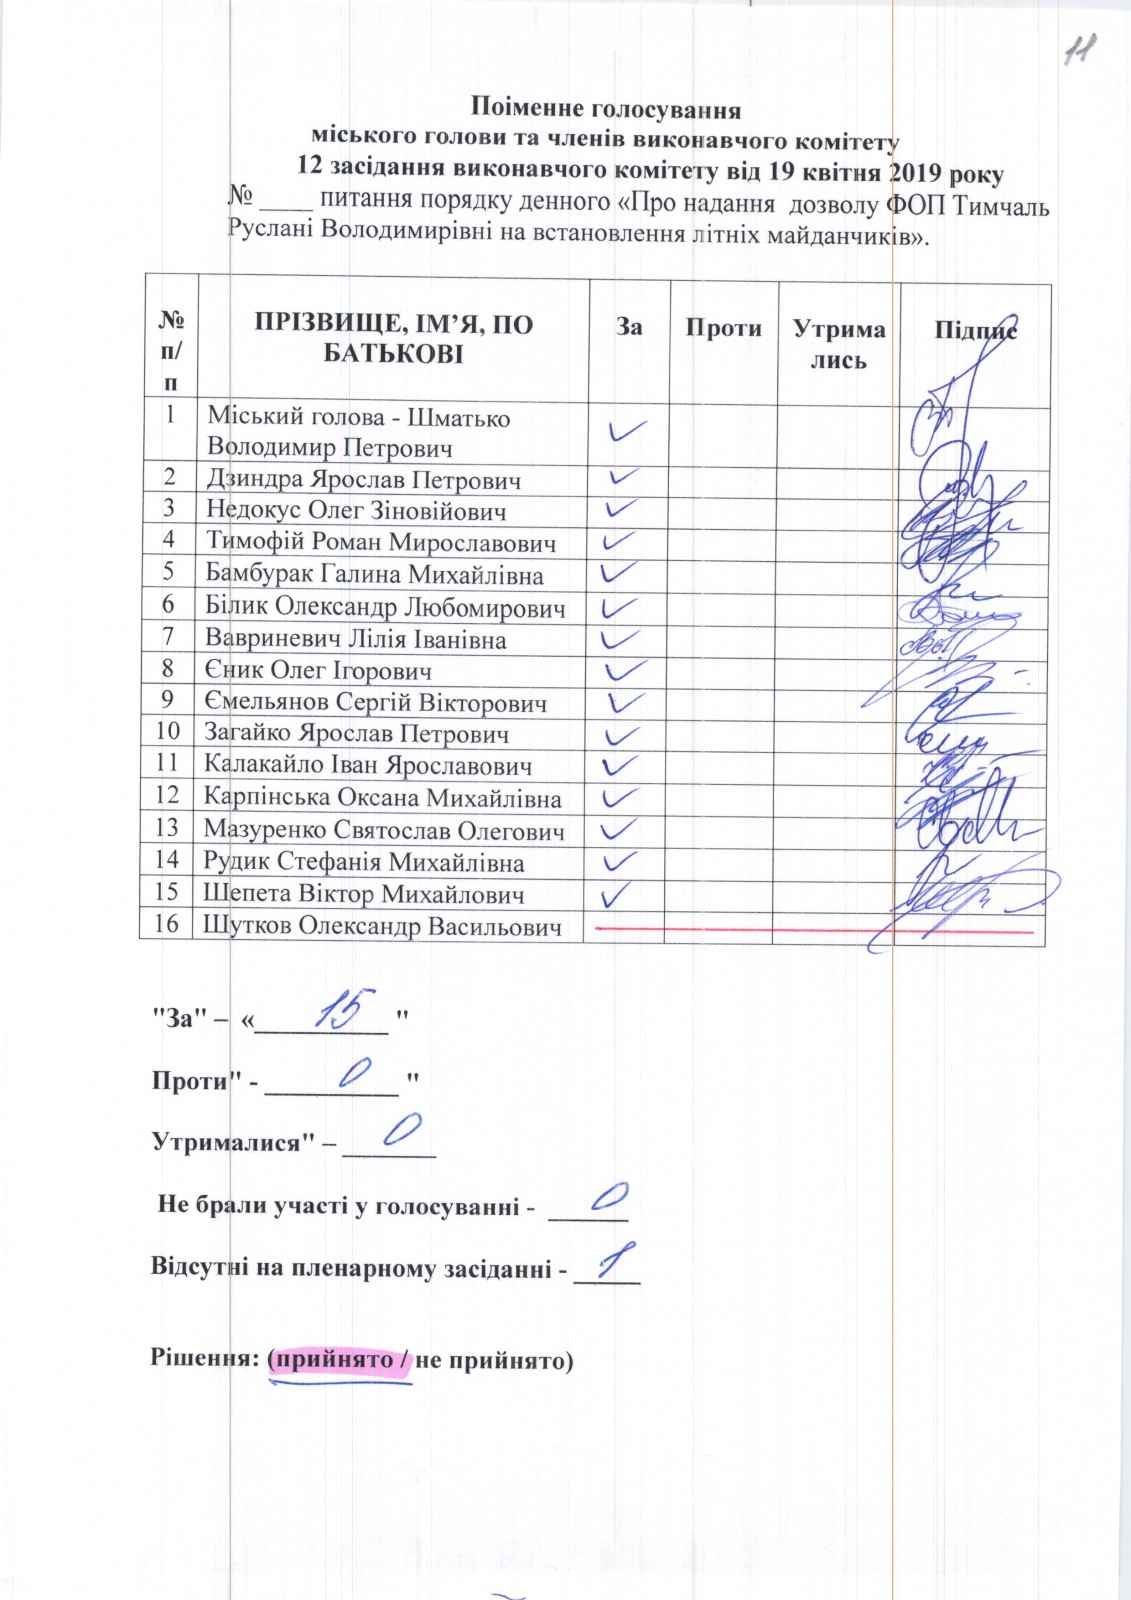 11
Поіменне голосування
міського голови та членів виконавчого комітету
12 засідання виконавчого комітету від 19 квітня 2019 року
№ ____ питання порядку денного «Про надання дозволу ФОП Тимчаль
Руслані Володимирівні на встановлення літніх майданчиків».
№ п/п ПРІЗВИЩЕ, ІМ’Я, ПО БАТЬКОВІ За Проти Утрима лись Підпис
1 Міський голова - Шматько
Володимир Петрович ✓
2 Дзиндра Ярослав Петрович ✓
3 Недокус Олег Зіновійович ✓
4 Тимофій Роман Мирославович ✓
5 Бамбурак Галина Михайлівна ✓
6 Білик Олександр Любомирович ✓
7 Вавриневич Лілія Іванівна ✓
8 Єник Олег Ігорович ✓
9 Ємельянов Сергій Вікторович ✓
10 Загайко Ярослав Петрович ✓
11 Калакайло Іван Ярославович ✓
12 Карпінська Оксана Михайлівна ✓
13 Мазуренко Святослав Олегович ✓
14 Рудик Стефанія Михайлівна ✓
15 Шепета Віктор Михайлович ✓
16 Шутков Олександр Васильович
"За" – «15 "
Проти" - 0 "
Утрималися" – 0
Не брали участі у голосуванні - 0
Відсутні на пленарному засіданні - 1
Рішення: (прийнято / не прийнято)